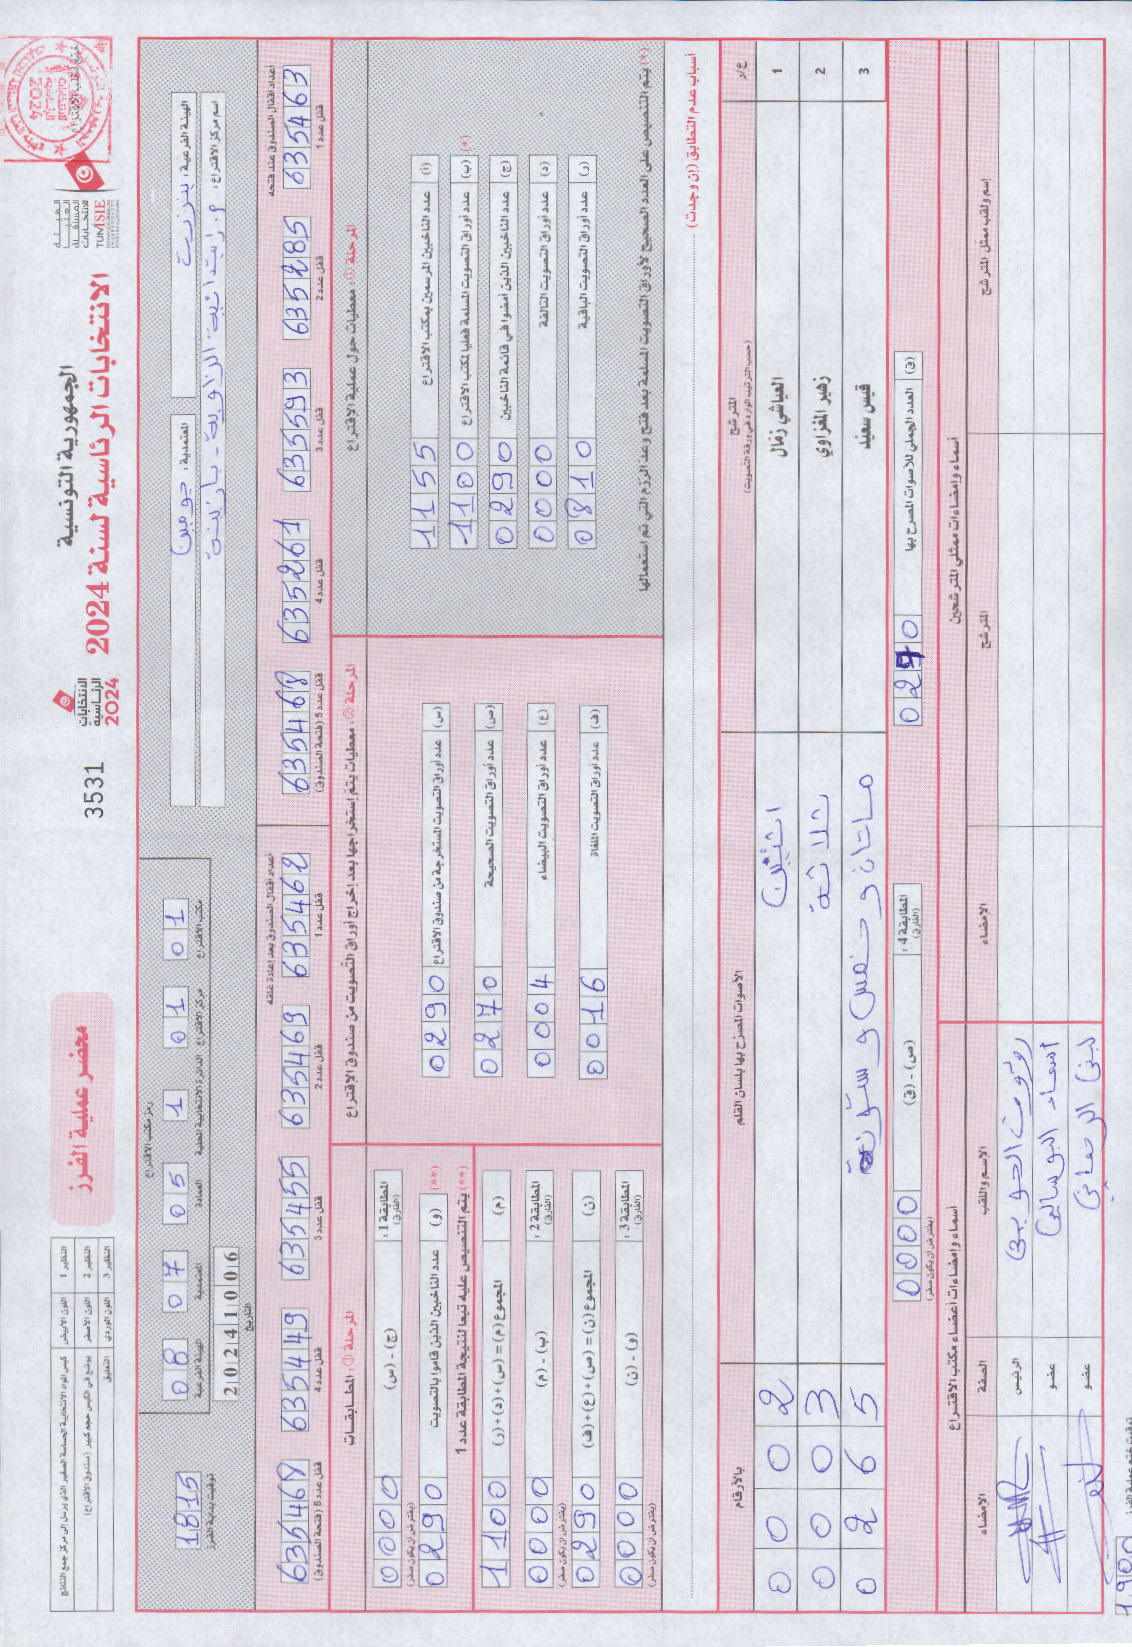 الجمهورية التونسية
الانتخابات الرئاسية لسنة 2024
الهيئة العليا المستقلة للانتخابات
TUNISIE
الانتخابات الرئاسية 2024
3531
محضر عملية الفرز
النظير 1 اللون الأبيض
النظير 2 اللون الأصفر يوضع في الكيس حجم كبير (صندوق الاقتراع)
النظير 3 اللون الوردي التعليق
الهيئة الفرعية : بنزرت
المعتمدية : جومين
اسم مركز الاقتراع :
رمز مكتب الاقتراع
الهيئة الفرعية 08
المعتمدية 07
العمادة 05
الدائرة الانتخابية المحلية 1
مركز الاقتراع 01
مكتب الاقتراع 01
التاريخ 20241006
توقيت بداية الفرز 1815
أعداد أقفال الصندوق عند فتحه
قفل عدد 1 635463
قفل عدد 2 635285
قفل عدد 3 635593
قفل عدد 4 635261
قفل عدد 5 (فتحة الصندوق) 635468
أعداد أقفال الصندوق بعد إعادة غلقه
قفل عدد 1 635462
قفل عدد 2 635469
قفل عدد 3 635455
قفل عدد 4 635449
قفل عدد 5 (فتحة الصندوق) 635468
المرحلة (1) : معطيات حول عملية الاقتراع
(أ) عدد الناخبين المرسمين بمكتب الاقتراع 1155
(ب) عدد أوراق التصويت المسلمة فعليا لمكتب الاقتراع 1100 (*)
(ج) عدد الناخبين الذين أمضوا في قائمة الناخبين 0290
(د) عدد أوراق التصويت التالفة 0000
(ر) عدد أوراق التصويت الباقية 0810
(*) يتم التنصيص على العدد الصحيح لأوراق التصويت المسلمة بعد فتح وعد الرزم التي تم استعمالها
المرحلة (2) : معطيات يتم إستخراجها بعد إخراج أوراق التصويت من صندوق الاقتراع
(س) عدد أوراق التصويت المستخرجة من صندوق الاقتراع 0290
(ص) عدد أوراق التصويت الصحيحة 0270
(ع) عدد أوراق التصويت البيضاء 0004
(ف) عدد أوراق التصويت الملغاة 0016
المرحلة (3) : المطابقات
المطابقة 1 : (الفارق) (ج) - (س) 0000 (يفترض أن يكون صفر)
(**) (و) عدد الناخبين الذين قاموا بالتصويت 0290
(**) يتم التنصيص عليه تبعا لنتيجة المطابقة عدد 1
(م) المجموع (م) = (س) + (د) + (ر) 1100
المطابقة 2 : (الفارق) (ب) - (م) 0000 (يفترض أن يكون صفر)
(ن) المجموع (ن) = (ص) + (ع) + (ف) 0290
المطابقة 3 : (الفارق) (و) - (ن) 0000 (يفترض أن يكون صفر)
أسباب عدم التطابق (إن وجدت)
ع/ر المترشح (حسب الترتيب الوارد في ورقة التصويت) الأصوات المصرح بها بلسان القلم بالأرقام
1 العياشي زمال اثنين 0002
2 زهير المغزاوي ثلاثة 0003
3 قيس سعيد مائتان و خمس و ستون 0265
(ق) العدد الجملي للأصوات المصرح بها 0270
المطابقة 4 : (الفارق) (ص) - (ق) 0000 (يفترض أن يكون صفر)
أسماء وإمضاءات ممثلي المترشحين
إسم ولقب ممثل المترشح المترشح الامضاء
أسماء وإمضاءات أعضاء مكتب الاقتراع
الاسم واللقب الصفة الامضاء
الرئيس
عضو
عضو